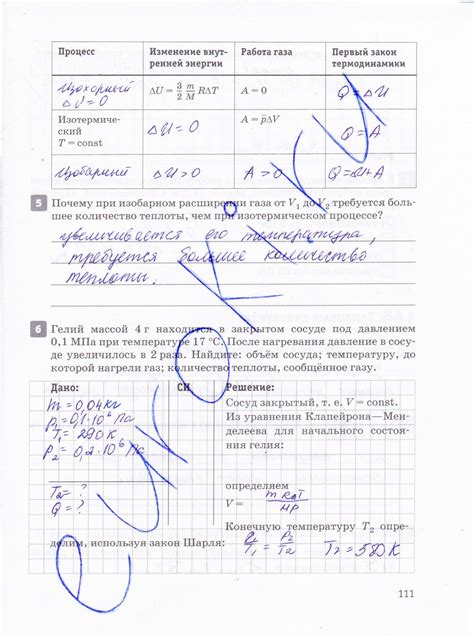 Процесс Изменение внут-ренней энергии Работа газа Первый закон термодинамики
Изохорный ΔU = 0 ΔU = 3/2 m/M RΔT A = 0 Q = ΔU
Изотермиче-ский T = const ΔU = 0 A = p̄ΔV Q = A
Изобарный ΔU > 0 A > 0 Q = ΔU + A
5 Почему при изобарном расширении газа от V₁ до V₂ требуется боль-
шее количество теплоты, чем при изотермическом процессе?
увеличивается его температура,
требуется большее количество
теплоты.
6 Гелий массой 4 г находится в закрытом сосуде под давлением
0,1 МПа при температуре 17 °С. После нагревания давление в сосу-
де увеличилось в 2 раза. Найдите: объём сосуда; температуру, до
которой нагрели газ; количество теплоты, сообщённое газу.
Дано: СИ Решение:
m = 0,04 кг Сосуд закрытый, т. е. V = const.
p₁ = 0,1·10⁶ Па Из уравнения Клапейрона—Мен-
T₁ = 290 К делеева для начального состоя-
P₂ = 0,2·10⁶ Па ния гелия:
T₂ = ? определяем
Q = ? V =
Конечную температуру T₂ опре-
делим, используя закон Шарля: P₁/T₁ = P₂/T₂ T₂ = 580 К
111